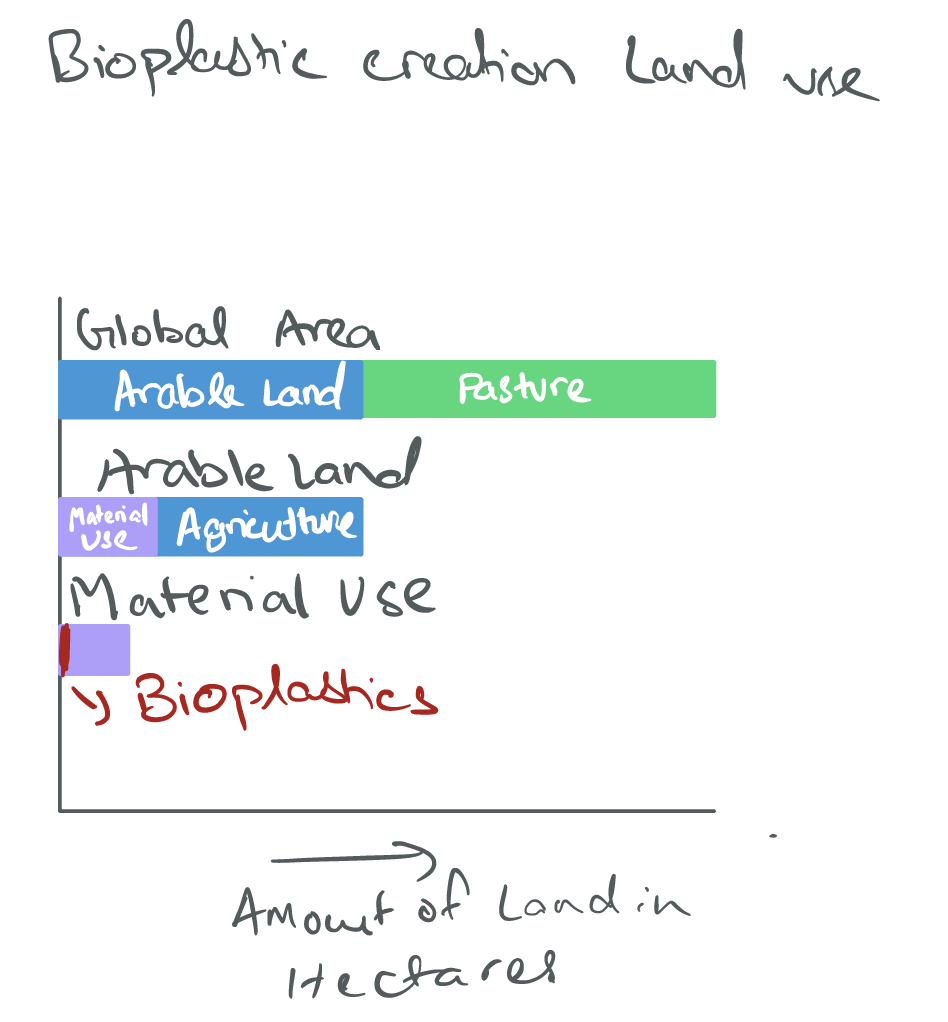 Bioplastic creation Land use
Global Area
Arable Land Pasture
Arable Land
Material
Use Agriculture
Material Use
Bioplastics
Amount of Land in
Hectares